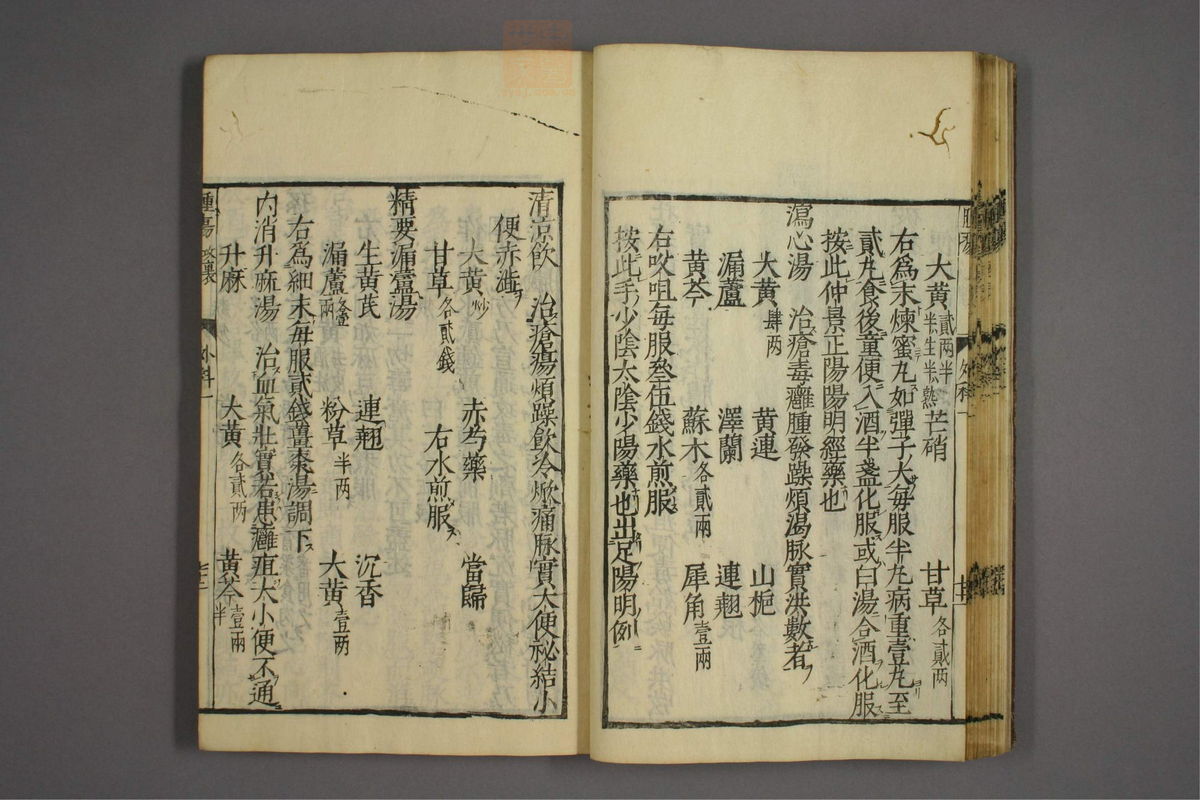 大黄貳兩半半生半熟 芒硝 甘草各貳兩
右爲末煉蜜丸如彈子大每服半丸病重壹丸至
貳丸食後童便入酒半盞化服或白湯合酒化服
按此仲景正陽陽明經藥也
瀉心湯 治瘡毒癰腫發躁煩渴脉實洪數者
大黄肆两 黄連 山梔
漏蘆 澤蘭 連翹
黄芩 蘇木各貳兩 犀角壹兩
右㕮咀每服叄伍錢水煎服
按此手少陰太陰少陽藥也出足陽明例
清凉飲 治瘡瘍煩躁飲冷焮痛脉實大便祕結小
便赤澁
大黄炒 赤芍藥 當歸
甘草各貳錢 右水煎服
精要漏蘆湯
生黄芪 連翹 沉香
漏蘆各壹兩 粉草半两 大黄壹两
右爲細末每服貳錢薑棗湯調下
内消升麻湯 治血氣壯實若患癰疽大小便不通
升麻 大黄各貳两 黄芩壹兩半
腫瘍 外科一